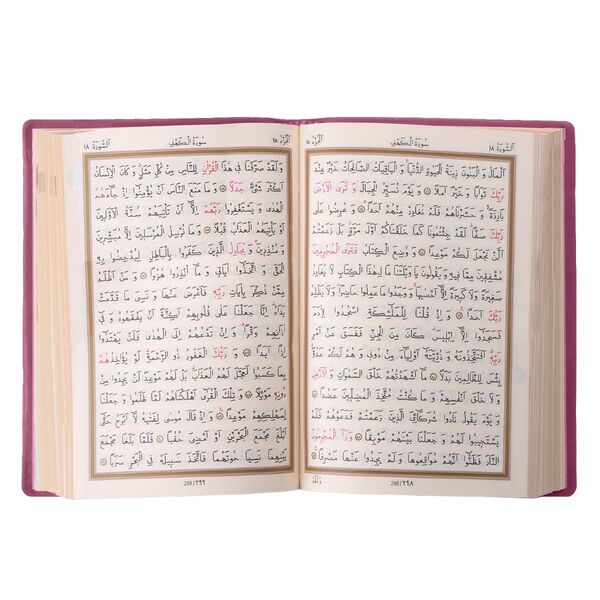 اَلْجُزْءُ ١٥
سُورَةُ الْكَهْفِ
اَلسُّورَةُ ١٨
اَلْمَالُ وَ الْبَنُونَ زِينَةُ الْحَيٰوةِ الدُّنْيَا وَ الْبَاقِيَاتُ الصَّالِحَاتُ خَيْرٌ عِنْدَ
رَبِّكَ ثَوَابًا وَ خَيْرٌ اَمَلًا وَ يَوْمَ نُسَيِّرُ الْجِبَالَ وَ تَرَى الْاَرْضَ
بَارِزَةً وَ حَشَرْنَاهُمْ فَلَمْ نُغَادِرْ مِنْهُمْ اَحَدًا وَ عُرِضُوا عَلٰى
رَبِّكَ صَفًّا لَقَدْ جِئْتُمُونَا كَمَا خَلَقْنَاكُمْ اَوَّلَ مَرَّةٍ بَلْ زَعَمْتُمْ
اَلَّنْ نَجْعَلَ لَكُمْ مَوْعِدًا وَ وُضِعَ الْكِتَابُ فَتَرَى الْمُجْرِمِينَ
مُشْفِقِينَ مِمَّا فِيهِ وَ يَقُولُونَ يَا وَيْلَتَنَا مَا لِهٰذَا الْكِتَابِ لَا يُغَادِرُ
صَغِيرَةً وَ لَا كَبِيرَةً اِلَّا اَحْصٰيهَا وَ وَجَدُوا مَا عَمِلُوا حَاضِرًا وَ لَا يَظْلِمُ
رَبُّكَ اَحَدًا وَ اِذْ قُلْنَا لِلْمَلٰئِكَةِ اسْجُدُوا لِاٰدَمَ
فَسَجَدُوا اِلَّا اِبْلِيسَ كَانَ مِنَ الْجِنِّ فَفَسَقَ عَنْ اَمْرِ
رَبِّهِ اَفَتَتَّخِذُونَهُ وَ ذُرِّيَّتَهُ اَوْلِيَاءَ مِنْ دُونِي وَ هُمْ لَكُمْ عَدُوٌّ
بِئْسَ لِلظَّالِمِينَ بَدَلًا مَا اَشْهَدْتُهُمْ خَلْقَ السَّمٰوَاتِ وَ الْاَرْضِ
وَ لَا خَلْقَ اَنْفُسِهِمْ وَ مَا كُنْتُ مُتَّخِذَ الْمُضِلِّينَ عَضُدًا
وَ يَوْمَ يَقُولُ نَادُوا شُرَكَائِيَ الَّذِينَ زَعَمْتُمْ فَدَعَوْهُمْ فَلَمْ
يَسْتَجِيبُوا لَهُمْ وَ جَعَلْنَا بَيْنَهُمْ مَوْبِقًا وَ رَاَ الْمُجْرِمُونَ
النَّارَ فَظَنُّوا اَنَّهُمْ مُوَاقِعُوهَا وَ لَمْ يَجِدُوا عَنْهَا مَصْرِفًا
298/٢٩٨
وَ لَقَدْ
اَلْجُزْءُ ١٥
سُورَةُ الْكَهْفِ
اَلسُّورَةُ ١٨
وَ لَقَدْ صَرَّفْنَا فِي هٰذَا الْقُرْاٰنِ لِلنَّاسِ مِنْ كُلِّ مَثَلٍ وَ كَانَ الْاِنْسَانُ
اَكْثَرَ شَيْءٍ جَدَلًا وَ مَا مَنَعَ النَّاسَ اَنْ يُؤْمِنُوا اِذْ جَاءَهُمُ
الْهُدٰى وَ يَسْتَغْفِرُوا رَبَّهُمْ اِلَّا اَنْ تَأْتِيَهُمْ سُنَّةُ الْاَوَّلِينَ
اَوْ يَأْتِيَهُمُ الْعَذَابُ قُبُلًا وَ مَا نُرْسِلُ الْمُرْسَلِينَ اِلَّا مُبَشِّرِينَ
وَ مُنْذِرِينَ وَ يُجَادِلُ الَّذِينَ كَفَرُوا بِالْبَاطِلِ لِيُدْحِضُوا بِهِ
الْحَقَّ وَ اتَّخَذُوا اٰيَاتِي وَ مَا اُنْذِرُوا هُزُوًا وَ مَنْ اَظْلَمُ
مِمَّنْ ذُكِّرَ بِاٰيَاتِ رَبِّهِ فَاَعْرَضَ عَنْهَا وَ نَسِيَ مَا قَدَّمَتْ
يَدَاهُ اِنَّا جَعَلْنَا عَلٰى قُلُوبِهِمْ اَكِنَّةً اَنْ يَفْقَهُوهُ وَ فِي
اٰذَانِهِمْ وَقْرًا وَ اِنْ تَدْعُهُمْ اِلَى الْهُدٰى فَلَنْ يَهْتَدُوا
اِذًا اَبَدًا وَ رَبُّكَ الْغَفُورُ ذُو الرَّحْمَةِ لَوْ يُؤَاخِذُهُمْ
بِمَا كَسَبُوا لَعَجَّلَ لَهُمُ الْعَذَابَ بَلْ لَهُمْ مَوْعِدٌ لَنْ يَجِدُوا مِنْ
دُونِهِ مَوْئِلًا وَ تِلْكَ الْقُرٰى اَهْلَكْنَاهُمْ لَمَّا ظَلَمُوا وَ جَعَلْنَا
لِمَهْلِكِهِمْ مَوْعِدًا وَ اِذْ قَالَ مُوسٰى لِفَتٰيهُ لَا اَبْرَحُ حَتّٰى
اَبْلُغَ مَجْمَعَ الْبَحْرَيْنِ اَوْ اَمْضِيَ حُقُبًا فَلَمَّا بَلَغَا مَجْمَعَ
بَيْنِهِمَا نَسِيَا حُوتَهُمَا فَاتَّخَذَ سَبِيلَهُ فِي الْبَحْرِ سَرَبًا
299/٢٩٩